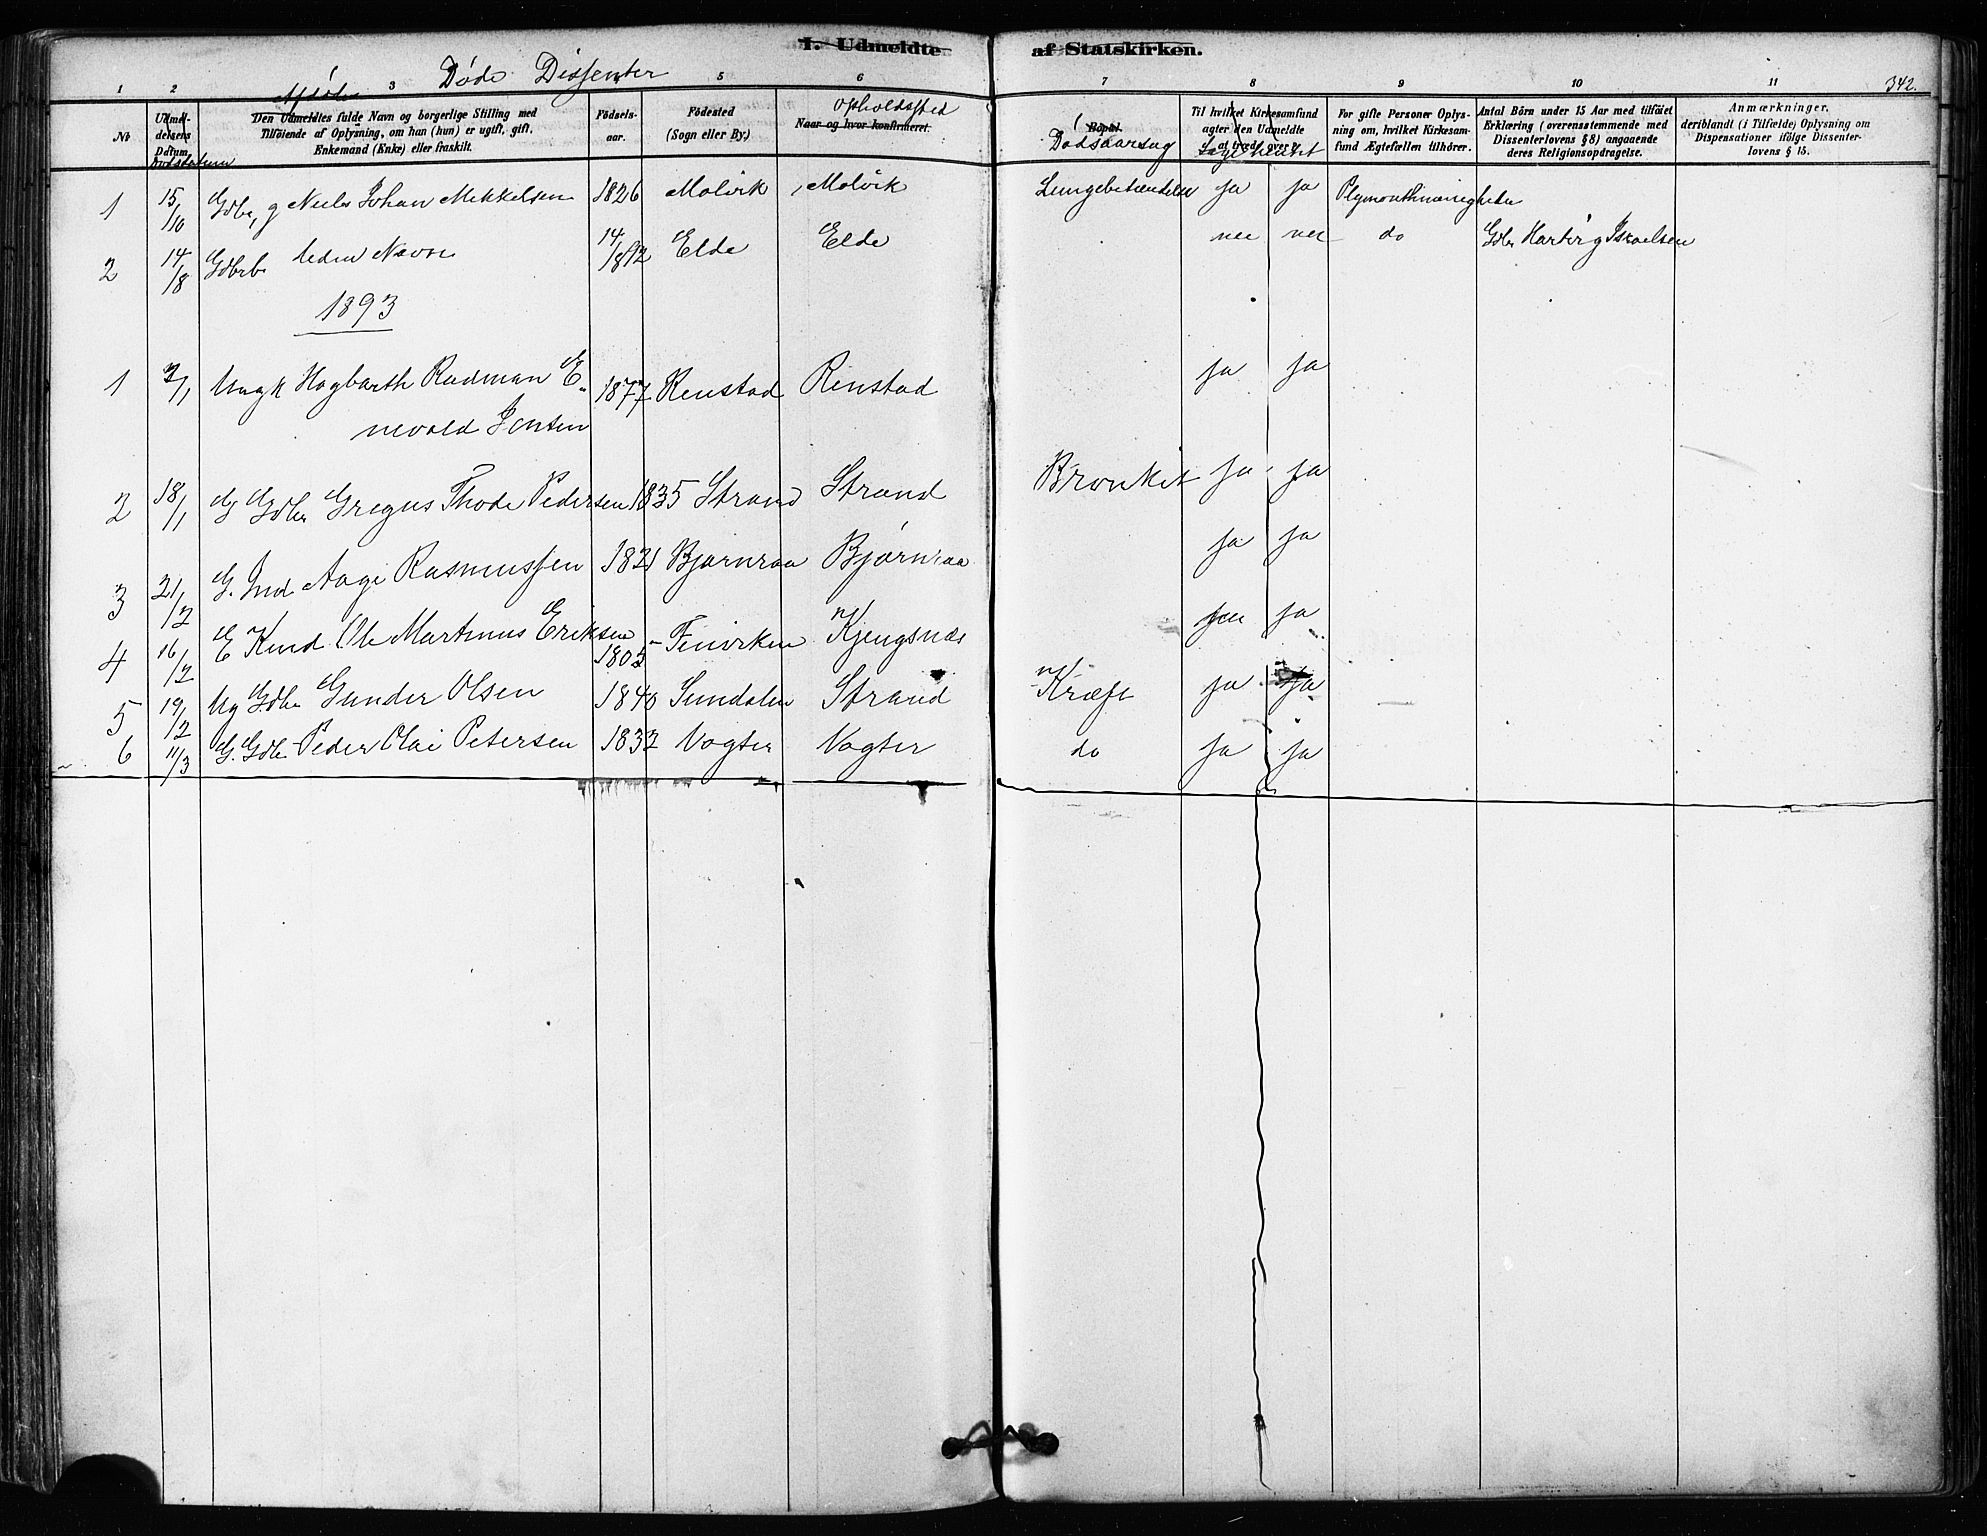 I. Udmeldte af Statskirken.
Døde Dissenter
342.
1 2 3 5 6 7 8 9 10 11
No
Udmeldelsens Datum.
Dødsdatum
Afdøde
Den Udmeldtes fulde Navn og borgerlige Stilling med
Tilføiende af Oplysning, om han (hun) er ugift, gift,
Enkemand (Enke) eller fraskilt.
Födselsaar.
Födested
(Sogn eller By.)
Opholdssted
Naar og hvor konfirmeret.
Bopæl
Dødsaarsag
Til hvilket Kirkesamfund
agter den Udmeldte
at træde over?
For gifte Personer Oplysning om, hvilket Kirkesamfund Ægtefællen tilhörer.
Antal Börn under 15 Aar med tilföiet
Erklæring (overensstemmende med
Dissenterlovens § 8) angaaende
deres Religionsopdragelse.
Anmærkninger,
deriblandt (i Tilfælde) Oplysning om
Dispensationer ifölge Dissenterlovens § 15.
1 15/10 Gdbr, g Niels Johan Mekkelsen 1826 Molvik Molvik Lungebetændelse ja ja Plymouthmenigheden
2 14/8 Gdbrb Uden Navn 14/8 92 Elde Elde nei nei do Gdbr Hartvig Israelsen
1893
1 7/1 Ungk Hagbarth Rudman E- 1877 Renstad Renstad ja ja
nevold Jensen
2 18/1 G Gdbr Gregus Thode Pedersen 1835 Strand Strand Bronkit ja ja
3 21/2 G. Ind Aage Rasmussen 1821 Bjørnraa Bjørnraa ja ja
4 16/2 E Kmd Ole Martinus Eriksen 1805 Kjengsnæs ja
5 19/2 Ug Gdbr Gunder Olsen 1840 Sundalen Strand Kræft ja ja
6 11/3 G. Gdbr Peder Olai Petersen 1832 Vogter Vogter do ja ja